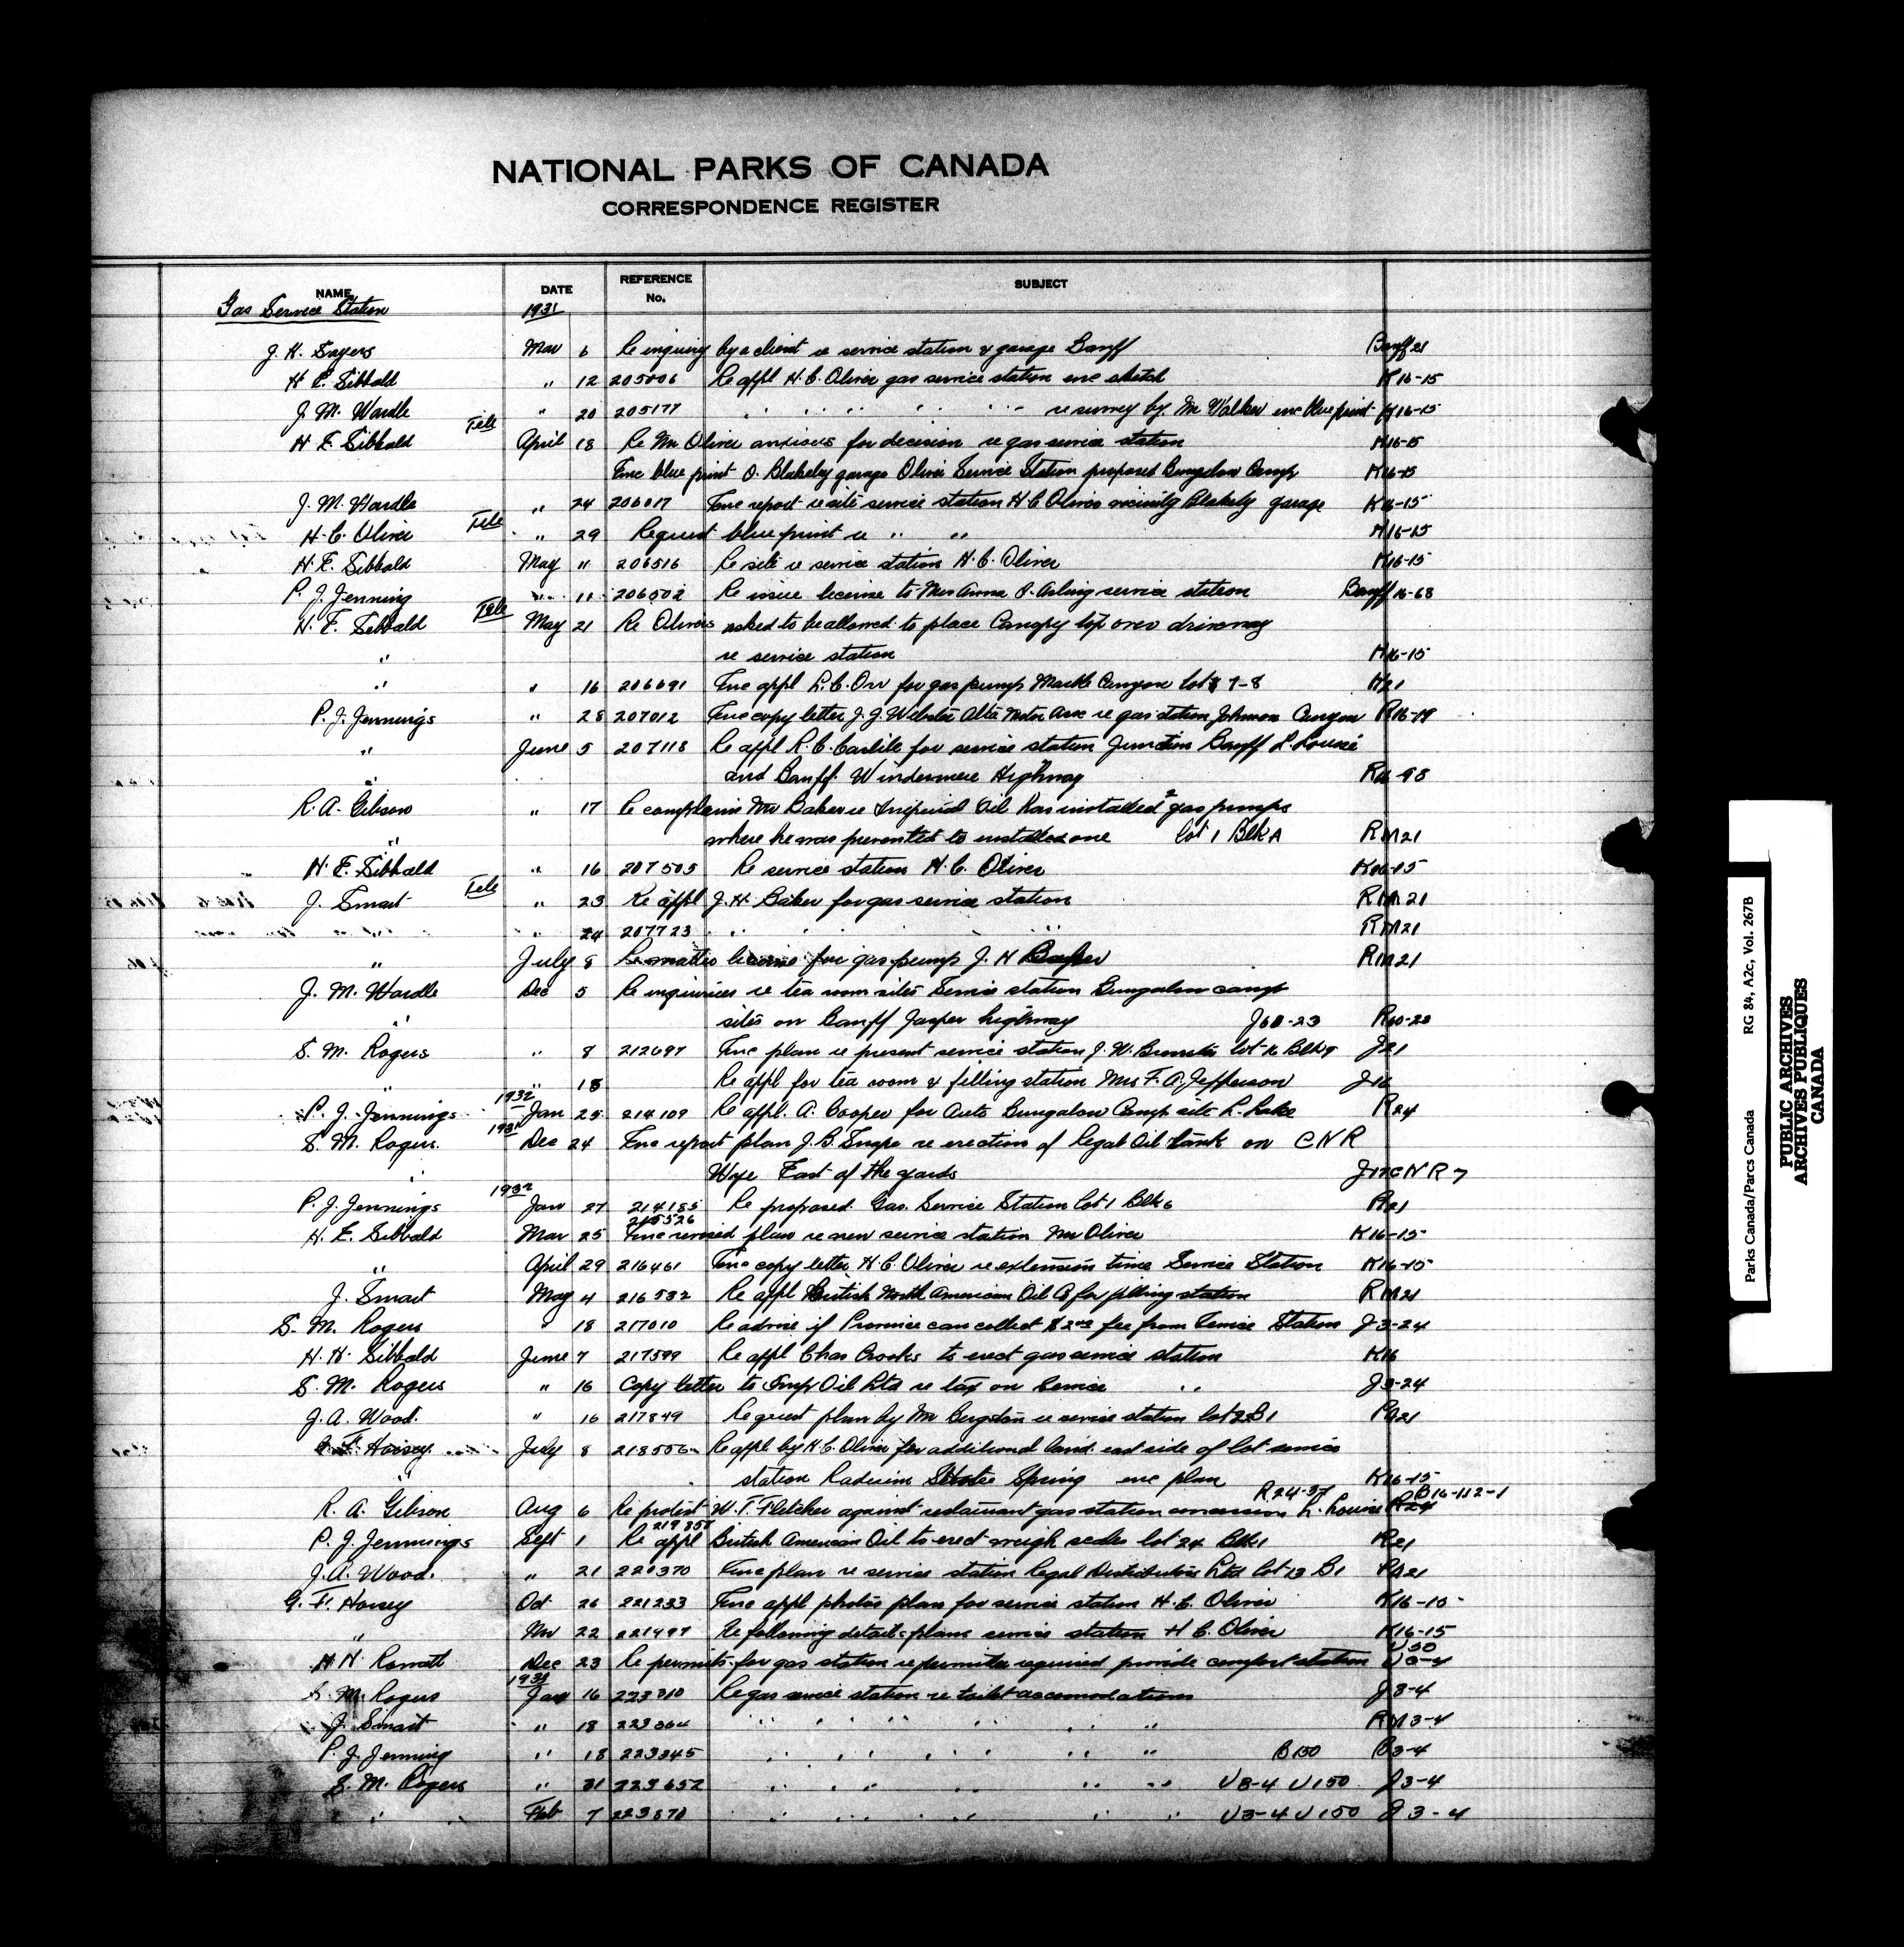 NATIONAL PARKS OF CANADA
CORRESPONDENCE REGISTER
NAME DATE REFERENCE No. SUBJECT
Gas Service Station 1931
J. H. Sayers Mar 6 Re inquiry by a client re service station & garage Banff Banff 21
H. E. Sibbald " 12 205006 Re appl H. C. Oliver gas service station enc sketch K16-15
J. M. Wardle " 20 205177 " " " " " " re survey by Mr Walker enc blue print K16-15
H. E. Sibbald Tele April 18 Re Mr Oliver anxious for decision re gas service station K16-15
Enc blue print O. Blakeley garage Oliver Service Station proposed Bungalow Camp K16-15
J. M. Wardle " 24 206017 Enc report re site service station H C Oliver vicinity Blakely garage K16-15
H. C. Oliver Tele " 29 Request blue print re " " K16-15
H. E. Sibbald May 11 206516 Re site re service station H. C. Oliver K16-15
P. J. Jenning " 11 206502 Re issue license to Mrs Anna service station Banff 16-68
H. E. Sibbald Tele May 21 Re Olivers asked to be allowed to place Canopy top over driveway
" re service station K16-15
" " 16 206691 Enc appl L. C. Orr for gas pump Marble Canyon lot 7-8 K21
P. J. Jennings " 28 207012 Enc copy letter J. J. Webster Alta Motor Assn re gas station Johnson Canyon R16-19
" June 5 207118 Re appl R. C. Carlile for service station Junction Banff L. Louise
" and Banff Windermere Highway R16-98
R. A. Gibson " 17 Re complains Mr Baker re Imperial Oil has installed 2 gas pumps
" where he was prevented to installed one lot 1 Blk A RM21
H. E. Sibbald " 16 207505 Re service station H. C. Oliver K16-15
J. Smart Tele " 23 Re appl J. H. Baker for gas service station RM21
" 24 207723 " " " RM21
" July 8 Re matter license for gas pump J. H Baker RM21
J. M. Wardle Dec 5 Re inquiries re tea room sites Service station Bungalow camp
" sites on Banff Jasper highway J60-23 R60-23
S. M. Rogers " 8 212697 Enc plan re present service station J. W. lot 16 Blk 9 J21
" " 18 Re appl for tea room & filling station Mrs F. A. Jefferson J16
P. J. Jennings 1932 Jan 25 214109 Re appl. A. Cooper for Auto Bungalow Camp site L. Lake R24
S. M. Rogers 1931 Dec 24 Enc report plan J. B. Snape re erection of Regal Oil tank on C N R
" Wye East of the yards J17CNR7
P. J. Jennings 1932 Jan 27 214185 Re proposed Gas. Service Station lot 1 Blk 6 R21
H. E. Sibbald Mar 25 215526 Enc revised plans re new service station Mr Oliver K16-15
" April 29 216461 Enc copy letter H. C. Oliver re extension time Service Station K16-15
J. Smart May 4 216532 Re appl British North American Oil Co for filling station RM21
S. M. Rogers " 18 217010 Re advise if Province can collect $2.00 fee from Service Station J3-24
H. H. Sibbald June 7 217599 Re appl Chas Crooks to erect gas service station K16
S. M. Rogers " 16 Copy letter to Imp Oil Ltd re tax on Service " J3-24
J. A. Wood. " 16 217849 Request plan by Mr re service station lot 2 B1 PA21
G. F. Horsey July 8 218556 Re appl by H. C. Oliver for additional land east side of lot service
" station Radium Spring enc plan K16-15
R. A. Gibson Aug 6 Re protest W. T. Fletcher against restaurant gas station concession L. Louise R24-37 R24 B16-112-1
P. J. Jennings Sept 1 219357 Re appl British American Oil to erect weigh scales lot 24 Blk1 R21
J. A. Wood. " 21 220370 Enc plan re service station Regal Distributors Ltd lot 13 B1 PA21
G. F. Horsey Oct 26 221233 Enc appl photos plan for service station H. C. Oliver K16-15
" Nov 22 221497 Re following details plans service station H C. Oliver K16-15
H H Dec 23 Re permits for gas station re permittee required provide comfort station U50 U3-4
S. M. Rogers 1933 Jan 16 223310 Re gas service station re toilet accomodations J3-4
J. Smart " 18 223364 " " " " " " RM3-4
P. J. Jenning " 18 223345 " " " " " " B150 B3-4
S. M. Rogers " 31 223652 " " " " " " U3-4 U150 J3-4
" Feb 7 223870 " " " " " " U3-4 U150 J3-4
Parks Canada/Parcs Canada RG 84, A2c, Vol. 267B
PUBLIC ARCHIVES
ARCHIVES PUBLIQUES
CANADA